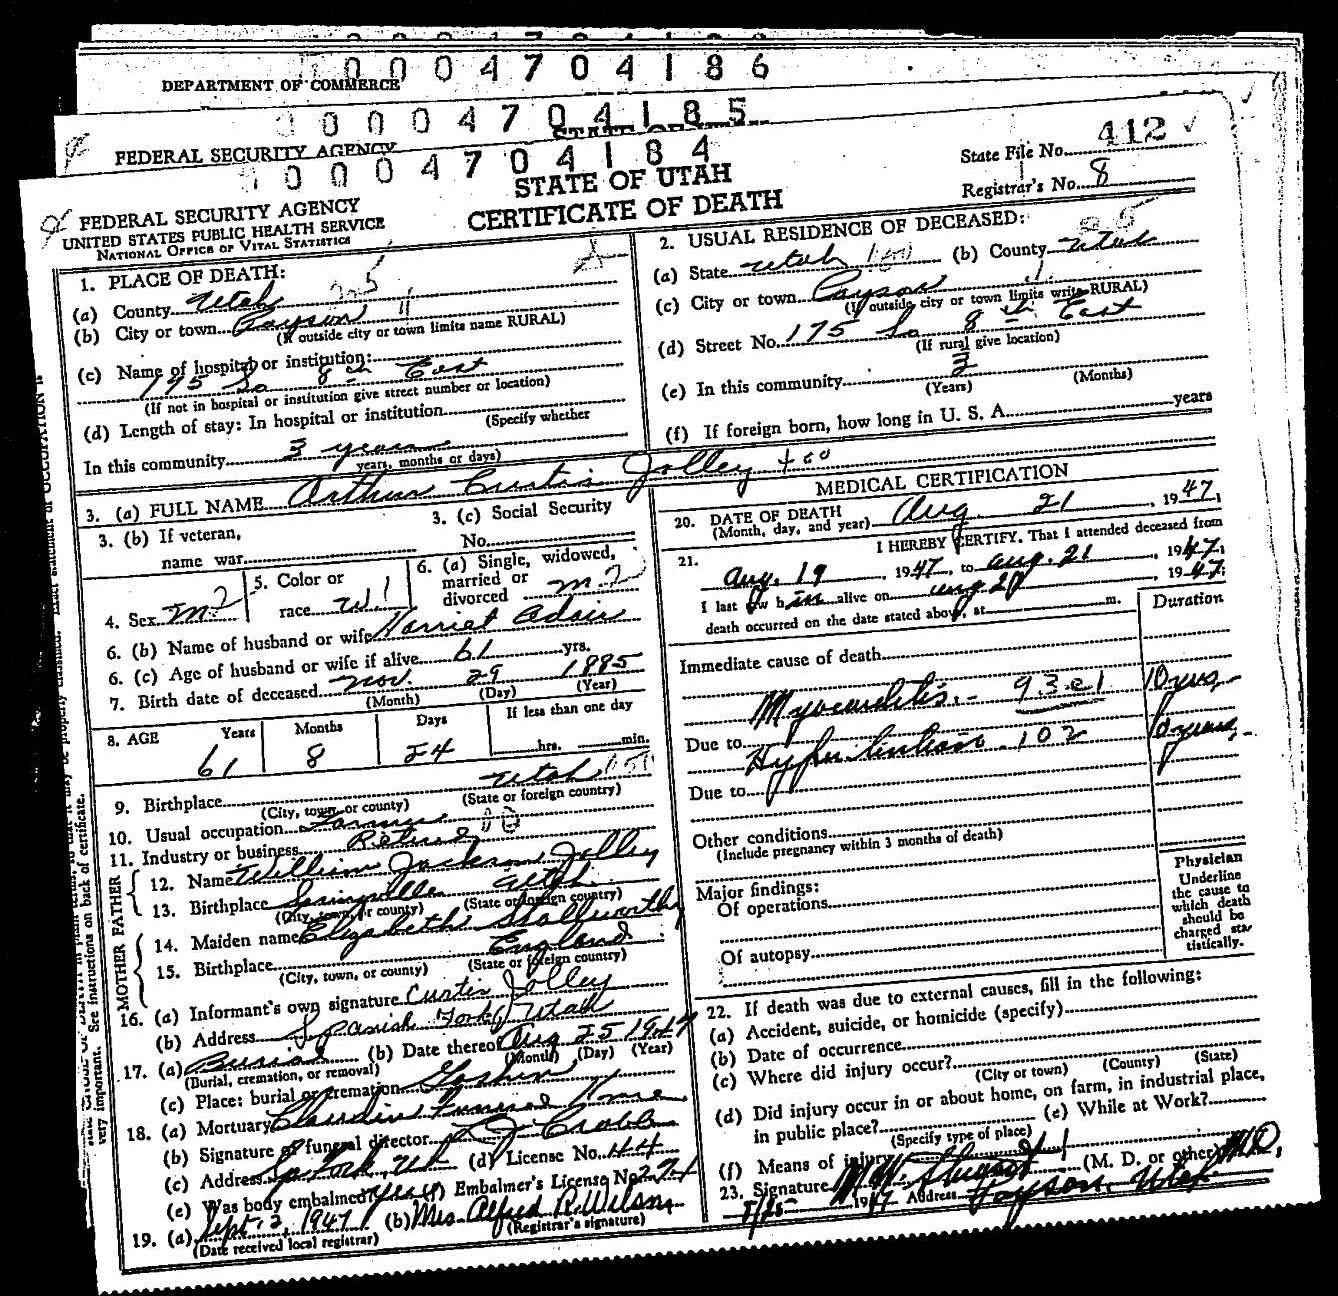 0 0 0 4 7 0 4 1 8 6
DEPARTMENT OF COMMERCE
0 0 0 4 7 0 4 1 8 5
FEDERAL SECURITY AGENCY
0 0 0 4 7 0 4 1 8 4
STATE OF UTAH
CERTIFICATE OF DEATH
State File No. 412
Registrar's No. 8
FEDERAL SECURITY AGENCY
UNITED STATES PUBLIC HEALTH SERVICE
NATIONAL OFFICE OF VITAL STATISTICS
1. PLACE OF DEATH:
(a) County Utah
(b) City or town Payson
(If outside city or town limits name RURAL)
(c) Name of hospital or institution:
175 So 8th East
(If not in hospital or institution give street number or location)
(d) Length of stay: In hospital or institution
(Specify whether
In this community 3 years
years, months or days)
2. USUAL RESIDENCE OF DECEASED:
(a) State Utah (b) County Utah
(c) City or town Payson
(If outside city or town limits write RURAL)
(d) Street No. 175 So 8th East
(If rural give location)
(e) In this community 3
(Years) (Months)
(f) If foreign born, how long in U. S. A. years
3. (a) FULL NAME Arthur Curtis Jolley
3. (b) If veteran,
name war
3. (c) Social Security
No.
4. Sex M
5. Color or
race W
6. (a) Single, widowed,
married or
divorced M
6. (b) Name of husband or wife Harriet Adair
6. (c) Age of husband or wife if alive 61 yrs.
7. Birth date of deceased Nov. 29 1885
(Month) (Day) (Year)
8. AGE Years Months Days If less than one day
61 8 24 hrs. min.
9. Birthplace Utah
(City, town or county) (State or foreign country)
10. Usual occupation Farmer
11. Industry or business Retired
FATHER
12. Name William Jackson Jolley
13. Birthplace Springville Utah
(City, town, or county) (State or foreign country)
MOTHER
14. Maiden name Elizabeth Stallworthy
15. Birthplace England
(City, town, or county) (State or foreign country)
16. (a) Informant's own signature Curtis Jolley
(b) Address Spanish Fork, Utah
17. (a) Burial (b) Date thereof Aug 25 1947
(Burial, cremation, or removal) (Month) (Day) (Year)
(c) Place: burial or cremation Goshen
18. (a) Mortuary Claudin Funeral Home
(b) Signature of funeral director
(c) Address Sp Fork, Ut (d) License No. 144
(e) Was body embalmed Yes (f) Embalmer's License No. 274
19. (a) Sept. 2, 1947 (b) Mrs. Alfred R. Wilson
(Date received local registrar) (Registrar's signature)
MEDICAL CERTIFICATION
20. DATE OF DEATH
(Month, day, and year) Aug 21, 1947
21. I HEREBY CERTIFY, That I attended deceased from
Aug. 19, 1947, to Aug. 21, 1947;
I last saw him alive on Aug 20, 1947;
death occurred on the date stated above, at m.
Duration
Immediate cause of death
Myocarditis. 93e1 10 yrs
Due to Hypertension 102 10 years
Due to
Other conditions
(Include pregnancy within 3 months of death)
Major findings:
Of operations
Of autopsy
Physician
Underline
the cause to
which death
should be
charged sta-
tistically.
22. If death was due to external causes, fill in the following:
(a) Accident, suicide, or homicide (specify)
(b) Date of occurrence
(c) Where did injury occur?
(City or town) (County) (State)
(d) Did injury occur in or about home, on farm, in industrial place,
in public place? (e) While at Work?
(Specify type of place)
(f) Means of injury
23. Signature (M. D. or other) M.D.
1947 Address Payson, Utah